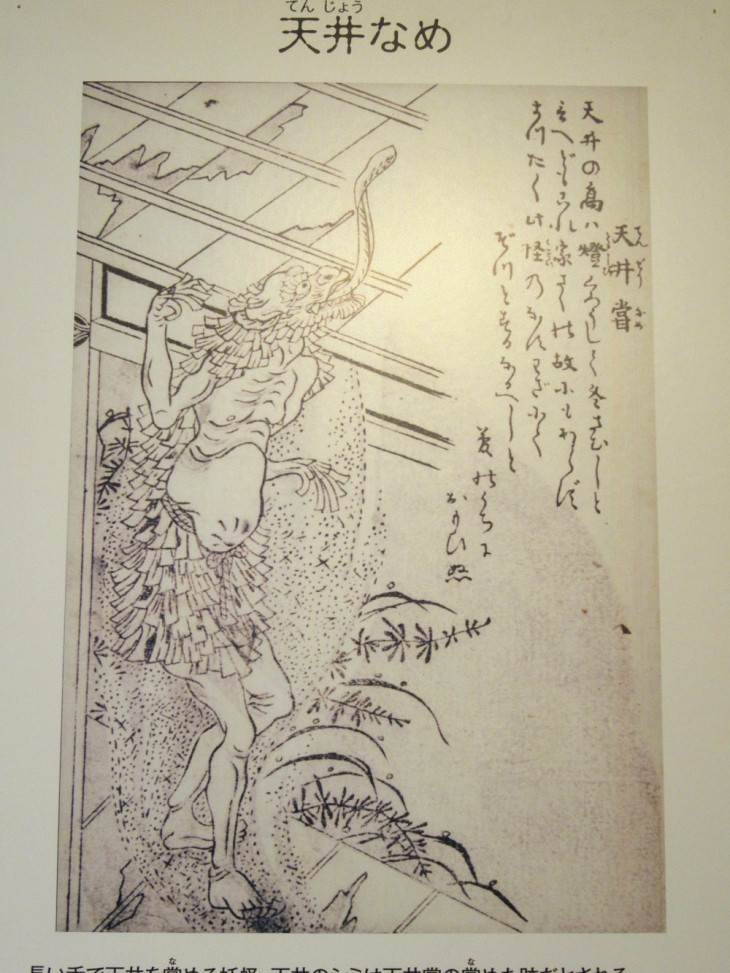 てんじょう
天井なめ
天井嘗
てんぜうなめ
天井の高ハ燈くらうして冬さむしと
言へどもこれ家さくの故にもあらず
まつたく此怪のなすわざにて
ぞつとするなるべしと
夢のうちに
おもひぬ
長い舌で天井を嘗める妖怪。天井のシミは天井嘗の嘗めた跡だとされる